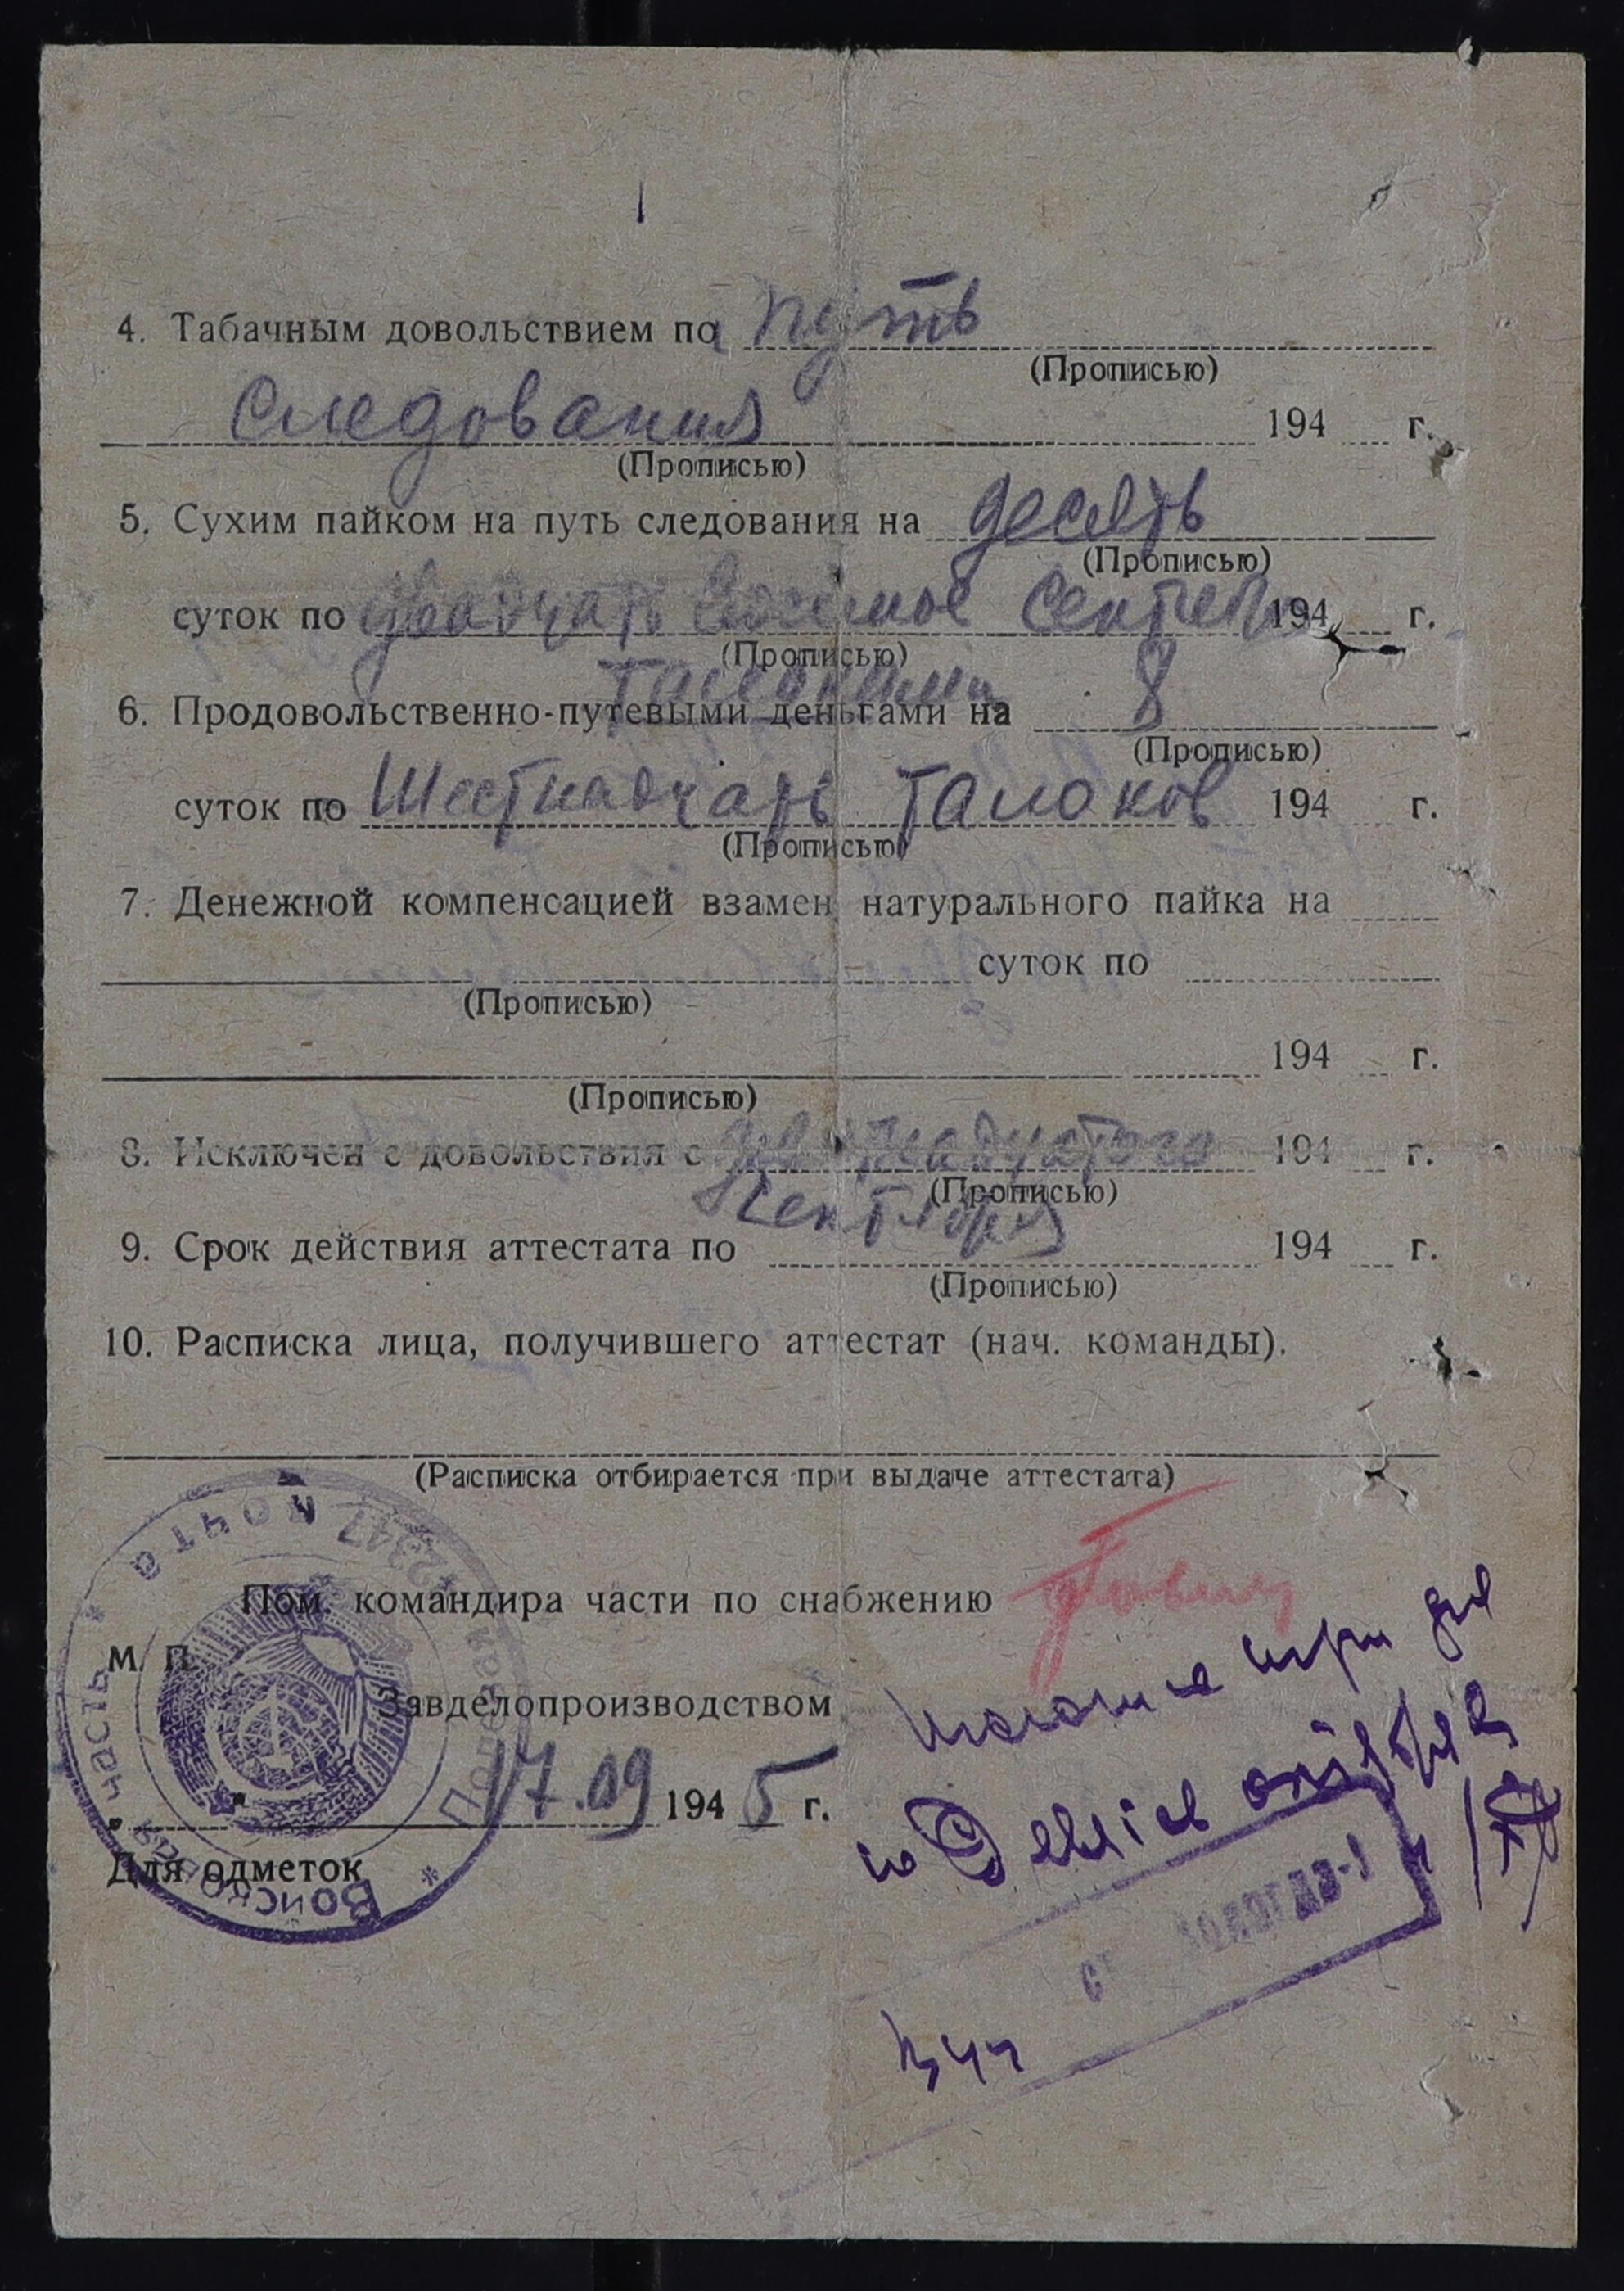 4. Табачным довольствием по путь
(Прописью)
следования 194 г.
(Прописью)
5. Сухим пайком на путь следования на десять
(Прописью)
суток по двадцать восьмое 194 г.
(Прописью)
талонами
6. Продовольственно-путевыми деньгами на 8
(Прописью)
суток по Шестнадцать талонов 194 г.
(Прописью)
7. Денежной компенсацией взамен натурального пайка на
суток по
(Прописью)
194 г.
(Прописью)
8. Исключен с довольствия с девятнадцатого 194 г.
(Прописью)
сентября
9. Срок действия аттестата по 194 г.
(Прописью)
10. Расписка лица, получившего аттестат (нач. команды).
(Расписка отбирается при выдаче аттестата)
Пом. командира части по снабжению
М. П.
Завделопроизводством
17.09 1945 г.
Для одметок
Войсковая часть * Полевая почта 12347 *
ст Вологда-1